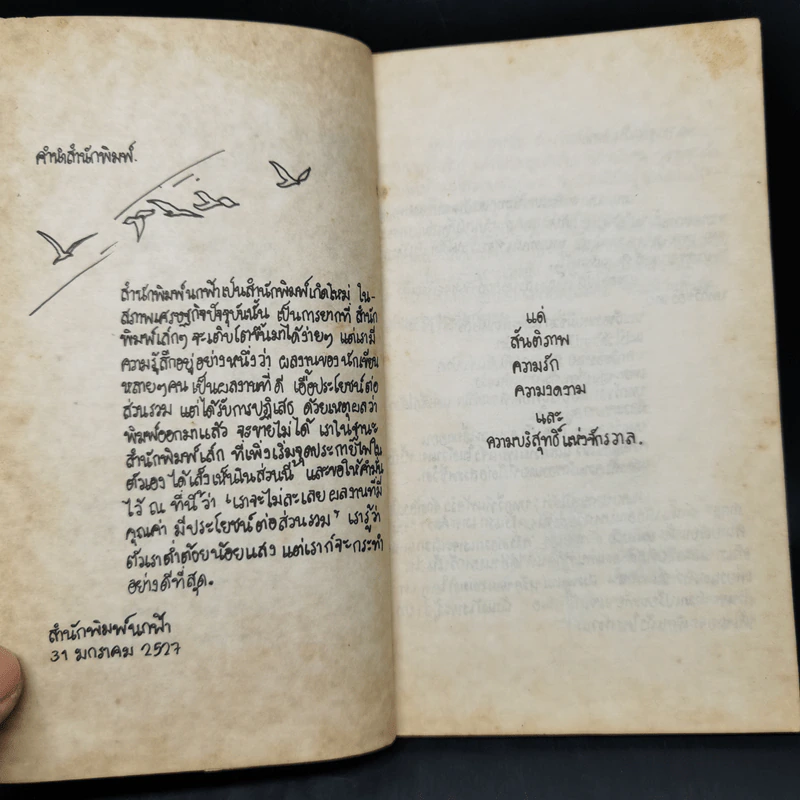 คำนำสำนักพิมพ์.
สำนักพิมพ์นกฟ้าเป็นสำนักพิมพ์เกิดใหม่ ใน-
สภาพเศรษฐกิจปัจจุบันนั้น เป็นการยากที่ สำนัก
พิมพ์เล็กๆ จะเติบโตขึ้นมาได้ง่ายๆ แต่เรามี
ความรู้สึกอยู่อย่างหนึ่งว่า ผลงานของนักเขียน
หลายๆคน เป็นผลงานที่ดี เอื้อประโยชน์ต่อ
ส่วนรวม แต่ได้รับการปฏิเสธ ด้วยเหตุผลว่า
พิมพ์ออกมาแล้ว จะขายไม่ได้ เราในฐานะ
สำนักพิมพ์เล็ก ที่เพิ่งเริ่มจุดประกายไฟใน
ตัวเอง ได้เล็งเห็นในส่วนนี้ และขอให้คำมั่น
ไว้ ณ ที่นี้ ว่า "เราจะไม่ละเลย ผลงานที่มี
คุณค่า มีประโยชน์ต่อส่วนรวม" เรารู้ว่า
ตัวเราต่ำต้อยน้อยแสง แต่เราก็จะกระทำ
อย่างดีที่สุด.
สำนักพิมพ์นกฟ้า
31 มกราคม 2527
แด่
สันติภาพ
ความรัก
ความงดงาม
และ
ความบริสุทธิ์แห่งจักรวาล.